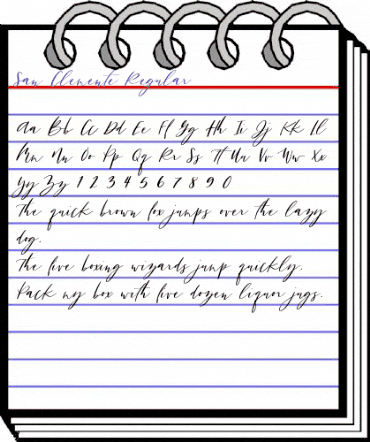 San Clemente Regular
Aa Bb Cc Dd Ee Ff Gg Hh Ii Jj Kk Ll
Mm Nn Oo Pp Qq Rr Ss Tt Uu Vv Ww Xx
Yy Zz 1 2 3 4 5 6 7 8 9 0
The quick brown fox jumps over the lazy
dog.
The five boxing wizards jump quickly.
Pack my box with five dozen liquor jugs.